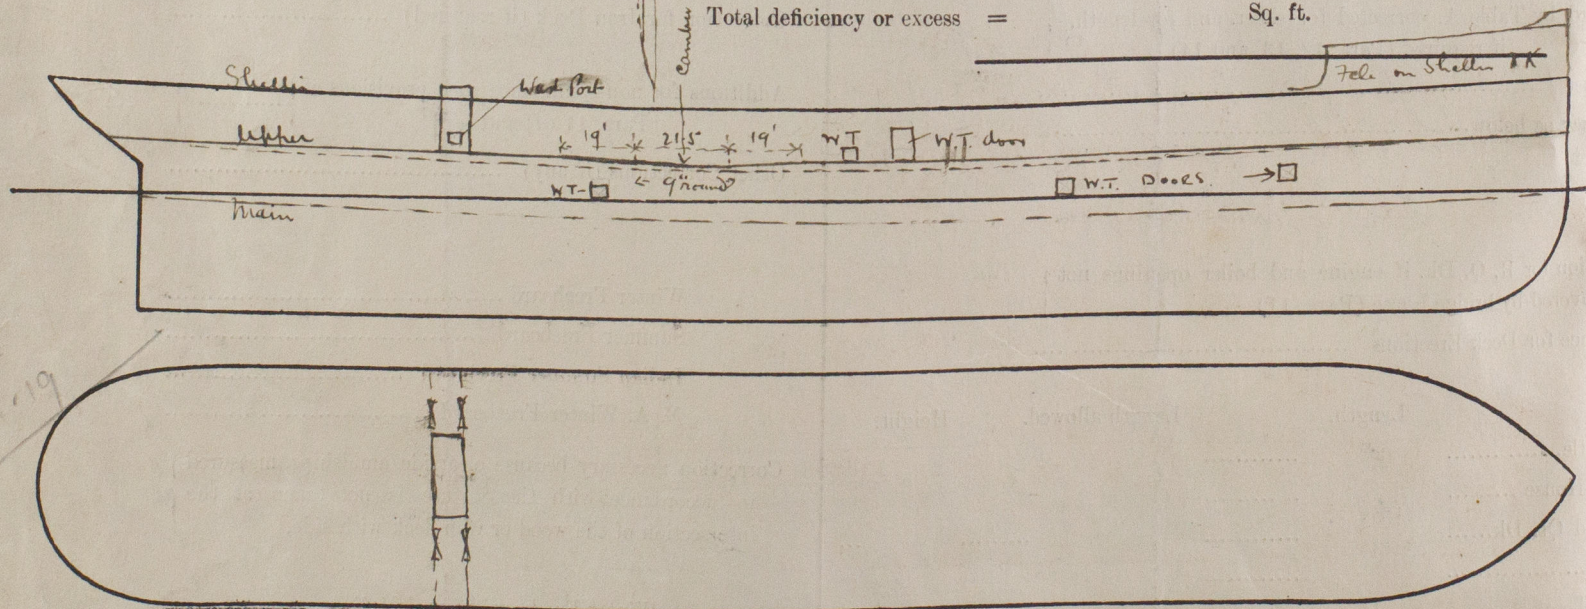 Total deficiency or excess = Sq. ft.
Camber
Shelter
Wash Port
Fcle on Shelter DK
Upper
19' 21.5' 19'
W.T
W.T. door
WT
9" round
W.T. DOORS
Main